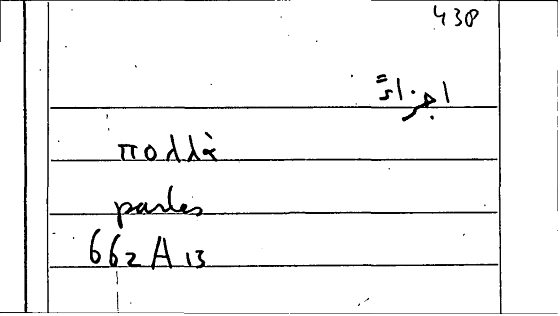 438
اجزاءً
πολλὰ
partes
662 A 13